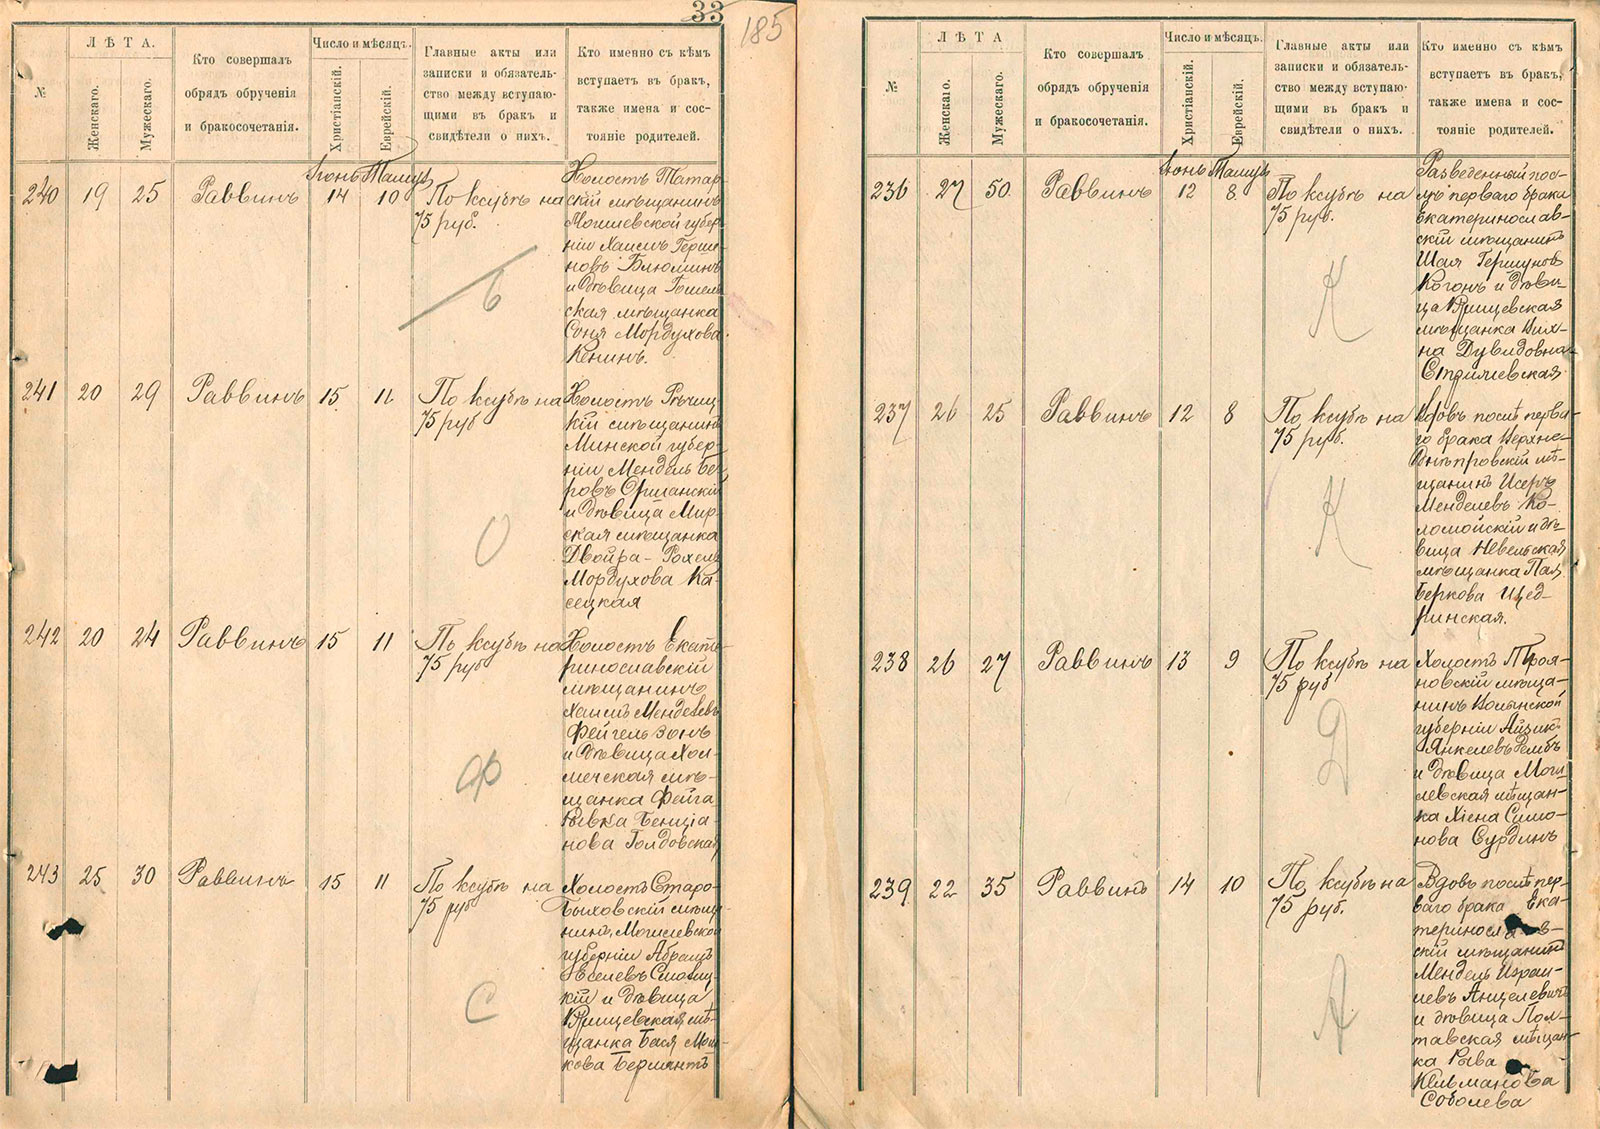 33
185
№
ЛѢТА.
Женскаго.
Мужескаго.
Кто совершалъ
обрядъ обрученія
и бракосочетанія.
Число и мѣсяцъ.
Христіанскій.
Еврейскій.
Главные акты или
записки и обязатель-
ство между вступаю-
щими въ бракъ и
свидѣтели о нихъ.
Кто именно съ кѣмъ
вступаетъ въ бракъ,
также имена и сос-
тояніе родителей.
Іюнь Тамузъ
240 19 25 Раввинъ 14 10 По ксубѣ на
75 руб.
Ъ
Холостъ Татар-
скій мѣщанинъ
Могилевской губер-
ніи Хаимъ Герш-
новъ Блюминъ
и дѣвица Гомель-
ская мѣщанка
Соня Мордухова
Кенинъ.
241 20 29 Раввинъ 15 11 По ксубѣ на
75 руб
О
Холостъ Рѣчиц-
кій мѣщанинъ
Минской губер-
ніи Мендель Бе-
ровъ Оршанскій
и дѣвица Мир-
ская мѣщанка
Двойра-Рохель
Мордухова Ка-
сецкая
242 20 24 Раввинъ 15 11 По ксубѣ на
75 руб
Ф
Холостъ Екате-
ринославскій
мѣщанинъ
Хаимъ Менделевъ
Фейгельзонъ
и дѣвица Хол-
мечская мѣ-
щанка Фейга
Рывка Бенціа-
нова Голдовская
243 25 30 Раввинъ 15 11 По ксубѣ на
75 руб
С
Холостъ Старо-
Быховскій мѣща-
нинъ Могилевской
губерніи Абрамъ
Іоселевъ Смолиц-
кій и дѣвица
Кричевская мѣ-
щанка Бася Мош-
кова Бермантъ
№
ЛѢТА
Женскаго.
Мужескаго.
Кто совершалъ
обрядъ обрученія
и бракосочетанія.
Число и мѣсяцъ.
Христіанскій.
Еврейскій.
Главные акты или
записки и обязатель-
ство между вступаю-
щими въ бракъ и
свидѣтели о нихъ.
Кто именно съ кѣмъ
вступаетъ въ бракъ,
также имена и сос-
тояніе родителей.
Іюнь Тамузъ
236 27 50 Раввинъ 12 8 По ксубѣ на
75 руб.
К
Разведенный пос-
лѣ перваго брака
Екатеринослав-
скій мѣщанинъ
Шая Гершуновъ
Когонъ и дѣви-
ца Кричевская
мѣщанка Ких-
на Дувидовна
Стрилевская
237 26 25 Раввинъ 12 8 По ксубѣ на
75 руб.
К
Вдовъ послѣ перва-
го брака Верхне-
Днѣпровскій мѣ-
щанинъ Исеръ
Менделевъ Ко-
ломойскій и дѣ-
вица Невельская
мѣщанка Пая
Беркова Щед-
ринская.
238 26 27 Раввинъ 13 9 По ксубѣ на
75 руб
Д
Холостъ Троя-
новскій мѣща-
нинъ Волынской
губерніи Айзикъ
Янкелевъ Дембъ
и дѣвица Моги-
левская мѣщан-
ка Хіена Симо-
нова Сурдинъ
239 22 35 Раввинъ 14 10 По ксубѣ на
75 руб.
А
Вдовъ послѣ пер-
ваго брака Ека-
теринослав-
скій мѣщанинъ
Мендель Израи-
левъ Анцелевичъ
и дѣвица Пол-
тавская мѣщан-
ка Рыва
Кельманова
Соболева